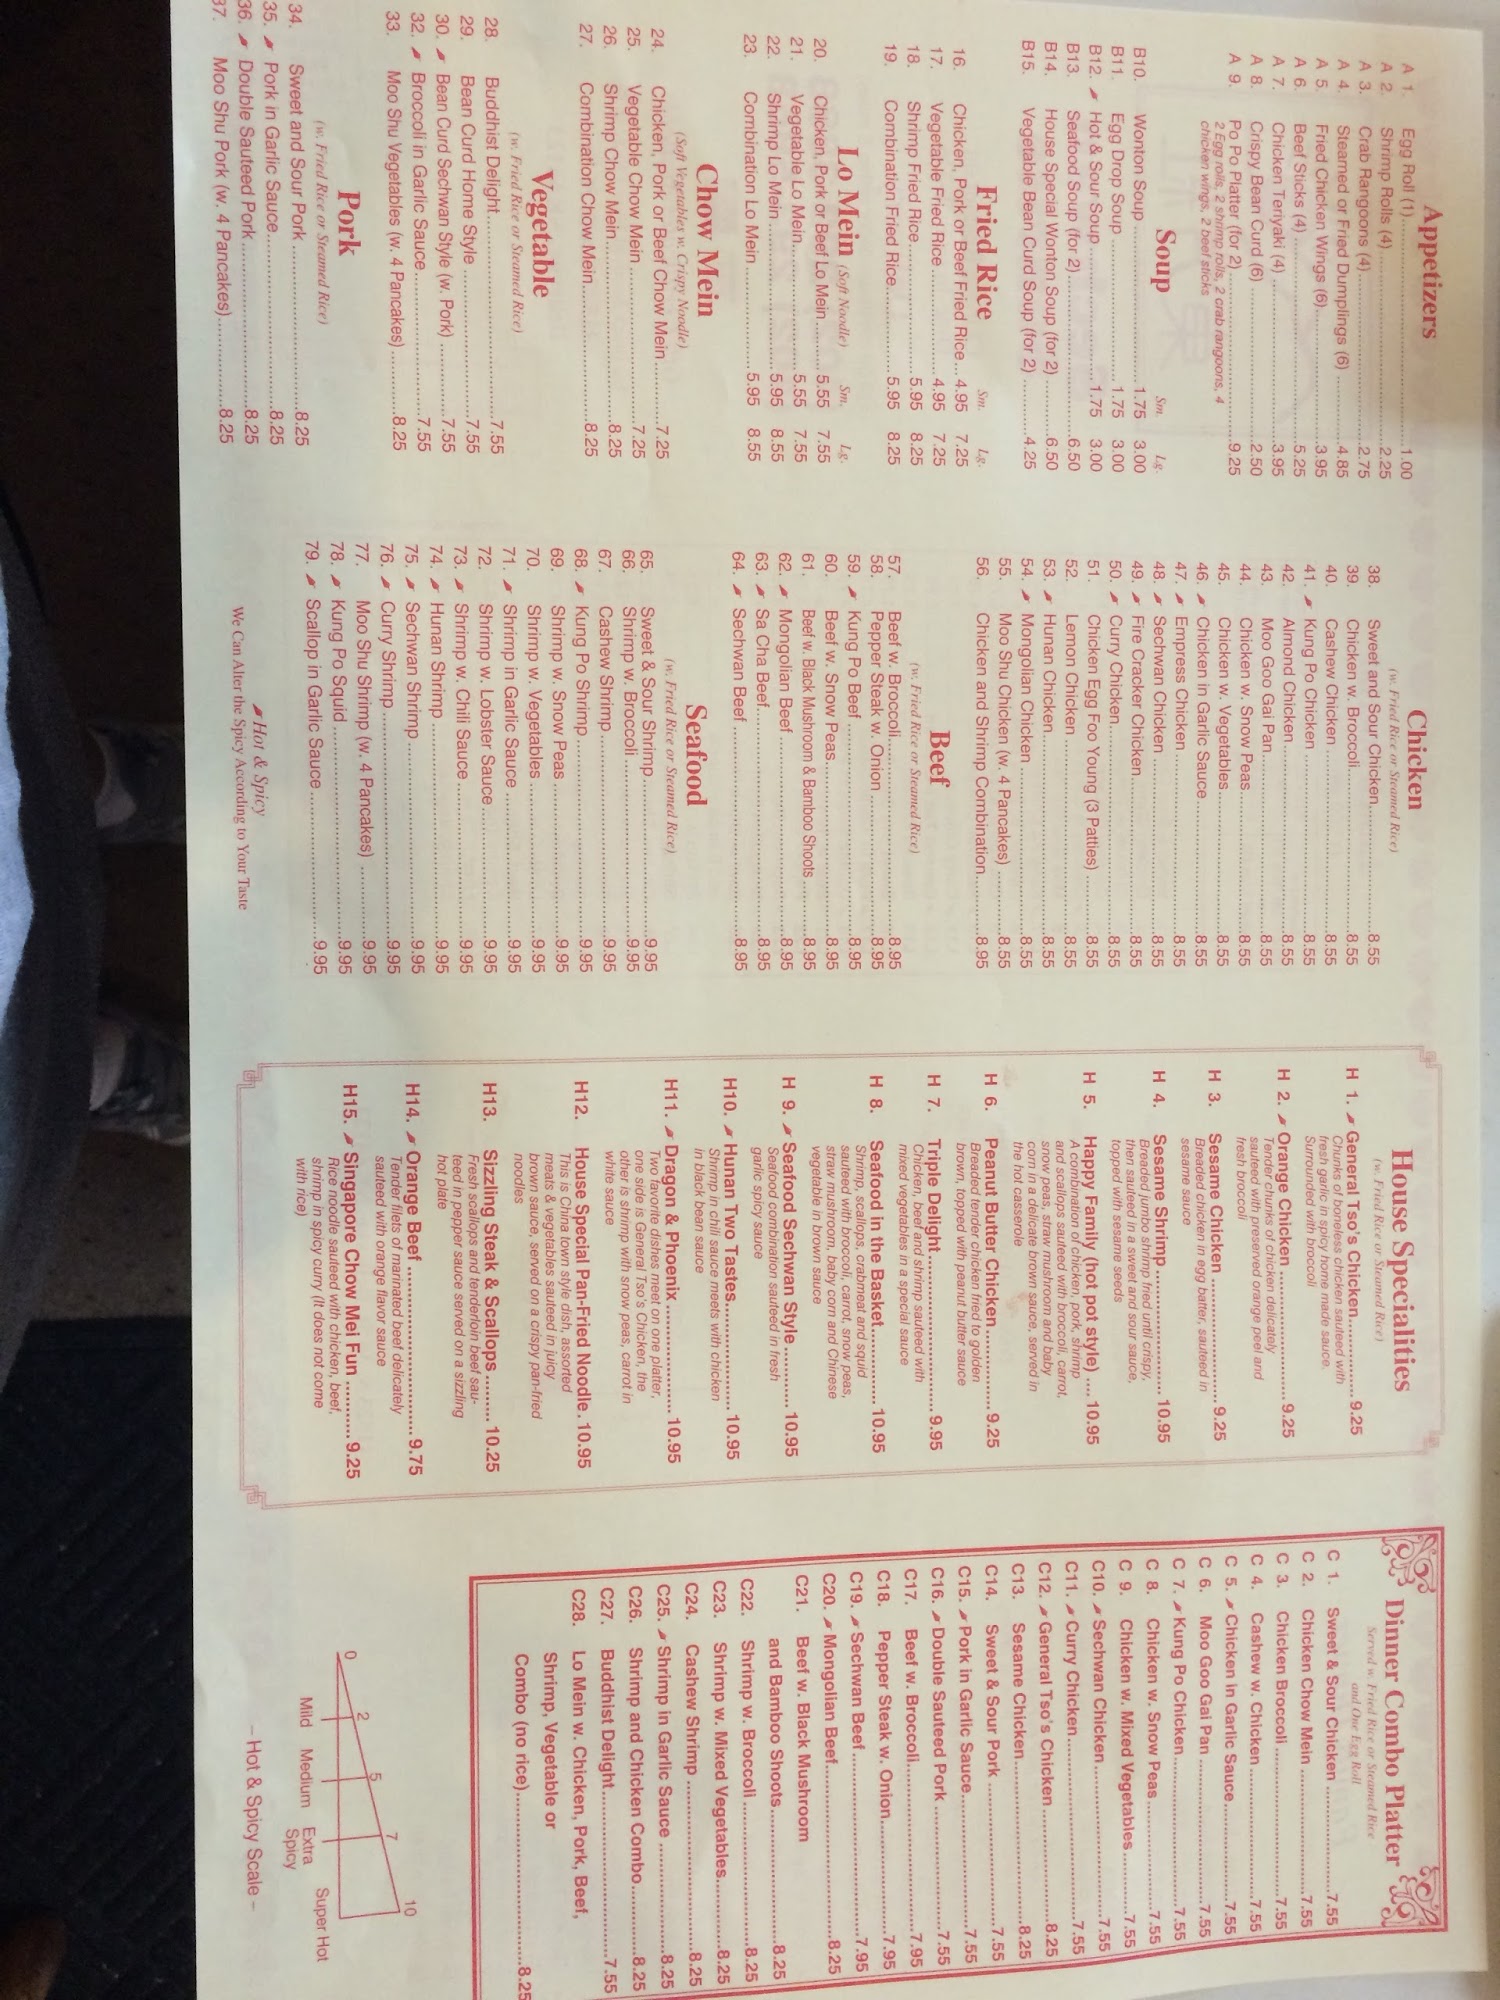 Appetizers
A 1. Egg Roll (1)....................1.00
A 2. Shrimp Rolls (4)....................2.25
A 3. Crab Rangoons (4)....................2.75
A 4. Steamed or Fried Dumplings (6)..........4.85
A 5. Fried Chicken Wings (6)....................3.95
A 6. Beef Sticks (4)....................5.25
A 7. Chicken Teriyaki (4)....................3.95
A 8. Crispy Bean Curd (6)....................2.50
A 9. Po Po Platter (for 2)....................9.25
2 Egg rolls, 2 shrimp rolls, 2 crab rangoons, 4
chicken wings, 2 beef sticks
Soup
Sm. Lg.
B10. Wonton Soup....................1.75 3.00
B11. Egg Drop Soup....................1.75 3.00
B12. Hot & Sour Soup....................1.75 3.00
B13. Seafood Soup (for 2)....................6.50
B14. House Special Wonton Soup (for 2)..........6.50
B15. Vegetable Bean Curd Soup (for 2)..........4.25
Fried Rice
Sm. Lg.
16. Chicken, Pork or Beef Fried Rice....4.95 7.25
17. Vegetable Fried Rice....................4.95 7.25
18. Shrimp Fried Rice....................5.95 8.25
19. Combination Fried Rice....................5.95 8.25
Lo Mein (Soft Noodle)
Sm. Lg.
20. Chicken, Pork or Beef Lo Mein........5.55 7.55
21. Vegetable Lo Mein....................5.55 7.55
22. Shrimp Lo Mein....................5.95 8.55
23. Combination Lo Mein....................5.95 8.55
Chow Mein
(Soft Vegetables w. Crispy Noodle)
24. Chicken, Pork or Beef Chow Mein..........7.25
25. Vegetable Chow Mein....................7.25
26. Shrimp Chow Mein....................8.25
27. Combination Chow Mein....................8.25
Vegetable
(w. Fried Rice or Steamed Rice)
28. Buddhist Delight....................7.55
29. Bean Curd Home Style....................7.55
30. Bean Curd Sechwan Style (w. Pork)..........7.55
32. Broccoli in Garlic Sauce....................7.55
33. Moo Shu Vegetables (w. 4 Pancakes)..........8.25
Pork
(w. Fried Rice or Steamed Rice)
34. Sweet and Sour Pork....................8.25
35. Pork in Garlic Sauce....................8.25
36. Double Sauteed Pork....................8.25
37. Moo Shu Pork (w. 4 Pancakes)..........8.25
Chicken
(w. Fried Rice or Steamed Rice)
38. Sweet and Sour Chicken....................8.55
39. Chicken w. Broccoli....................8.55
40. Cashew Chicken....................8.55
41. Kung Po Chicken....................8.55
42. Almond Chicken....................8.55
43. Moo Goo Gai Pan....................8.55
44. Chicken w. Snow Peas....................8.55
45. Chicken w. Vegetables....................8.55
46. Chicken in Garlic Sauce....................8.55
47. Empress Chicken....................8.55
48. Sechwan Chicken....................8.55
49. Fire Cracker Chicken....................8.55
50. Curry Chicken....................8.55
51. Chicken Egg Foo Young (3 Patties)..........8.55
52. Lemon Chicken....................8.55
53. Hunan Chicken....................8.55
54. Mongolian Chicken....................8.55
55. Moo Shu Chicken (w. 4 Pancakes)..........8.55
56. Chicken and Shrimp Combination..........8.95
Beef
(w. Fried Rice or Steamed Rice)
57. Beef w. Broccoli....................8.95
58. Pepper Steak w. Onion....................8.95
59. Kung Po Beef....................8.95
60. Beef w. Snow Peas....................8.95
61. Beef w. Black Mushroom & Bamboo Shoots..........8.95
62. Mongolian Beef....................8.95
63. Sa Cha Beef....................8.95
64. Sechwan Beef....................8.95
Seafood
(w. Fried Rice or Steamed Rice)
65. Sweet & Sour Shrimp....................9.95
66. Shrimp w. Broccoli....................9.95
67. Cashew Shrimp....................9.95
68. Kung Po Shrimp....................9.95
69. Shrimp w. Snow Peas....................9.95
70. Shrimp w. Vegetables....................9.95
71. Shrimp in Garlic Sauce....................9.95
72. Shrimp w. Lobster Sauce....................9.95
73. Shrimp w. Chili Sauce....................9.95
74. Hunan Shrimp....................9.95
75. Sechwan Shrimp....................9.95
76. Curry Shrimp....................9.95
77. Moo Shu Shrimp (w. 4 Pancakes)..........9.95
78. Kung Po Squid....................9.95
79. Scallop in Garlic Sauce....................9.95
Hot & Spicy
We Can Alter the Spicy According to Your Taste
House Specialities
(w. Fried Rice or Steamed Rice)
H 1. General Tso's Chicken............9.25
Chunks of boneless chicken sauteed with
fresh garlic in spicy home made sauce,
Surrounded with broccoli
H 2. Orange Chicken....................9.25
Tender chunks of chicken delicately
sauteed with preserved orange peel and
fresh broccoli
H 3. Sesame Chicken....................9.25
Breaded chicken in egg batter, sauteed in
sesame sauce
H 4. Sesame Shrimp....................10.95
Breaded jumbo shrimp fried until crispy,
then sauteed in a sweet and sour sauce,
topped with sesame seeds
H 5. Happy Family (hot pot style)....10.95
A combination of chicken, pork, shrimp
and scallops sauteed with broccoli, carrot,
snow peas, straw mushroom and baby
corn in a delicate brown sauce, served in
the hot casserole
H 6. Peanut Butter Chicken............9.25
Breaded tender chicken fried to golden
brown, topped with peanut butter sauce
H 7. Triple Delight....................9.95
Chicken, beef and shrimp sauteed with
mixed vegetables in a special sauce
H 8. Seafood in the Basket............10.95
Shrimp, scallops, crabmeat and squid
sauteed with broccoli, carrot, snow peas,
straw mushroom, baby corn and Chinese
vegetable in brown sauce
H 9. Seafood Sechwan Style............10.95
Seafood combination sauteed in fresh
garlic spicy sauce
H10. Hunan Two Tastes....................10.95
Shrimp in chili sauce meets with chicken
in black bean sauce
H11. Dragon & Phoenix....................10.95
Two favorite dishes meet on one platter,
one side is General Tso's Chicken, the
other is shrimp with snow peas, carrot in
white sauce
H12. House Special Pan-Fried Noodle.10.95
This is China town style dish, assorted
meats & vegetables sauteed in juicy
brown sauce, served on a crispy pan-fried
noodles
H13. Sizzling Steak & Scallops........10.25
Fresh scallops and tenderloin beef sau-
teed in pepper sauce served on a sizzling
hot plate
H14. Orange Beef....................9.75
Tender filets of marinated beef delicately
sauteed with orange flavor sauce
H15. Singapore Chow Mei Fun..........9.25
Rice noodle sauteed with chicken, beef,
shrimp in spicy curry (It does not come
with rice)
Dinner Combo Platter
Served w. Fried Rice or Steamed Rice
and One Egg Roll
C 1. Sweet & Sour Chicken....................7.55
C 2. Chicken Chow Mein....................7.55
C 3. Chicken Broccoli....................7.55
C 4. Cashew w. Chicken....................7.55
C 5. Chicken in Garlic Sauce....................7.55
C 6. Moo Goo Gai Pan....................7.55
C 7. Kung Po Chicken....................7.55
C 8. Chicken w. Snow Peas....................7.55
C 9. Chicken w. Mixed Vegetables..........7.55
C10. Sechwan Chicken....................7.55
C11. Curry Chicken....................7.55
C12. General Tso's Chicken....................8.25
C13. Sesame Chicken....................8.25
C14. Sweet & Sour Pork....................7.55
C15. Pork in Garlic Sauce....................7.55
C16. Double Sauteed Pork....................7.55
C17. Beef w. Broccoli....................7.95
C18. Pepper Steak w. Onion....................7.95
C19. Sechwan Beef....................7.95
C20. Mongolian Beef....................8.25
C21. Beef w. Black Mushroom
and Bamboo Shoots....................8.25
C22. Shrimp w. Broccoli....................8.25
C23. Shrimp w. Mixed Vegetables..........8.25
C24. Cashew Shrimp....................8.25
C25. Shrimp in Garlic Sauce....................8.25
C26. Shrimp and Chicken Combo..........8.25
C27. Buddhist Delight....................7.55
C28. Lo Mein w. Chicken, Pork, Beef,
Shrimp, Vegetable or
Combo (no rice)....................8.25
0 2 5 7 10
Mild Medium Extra Spicy Super Hot
– Hot & Spicy Scale –